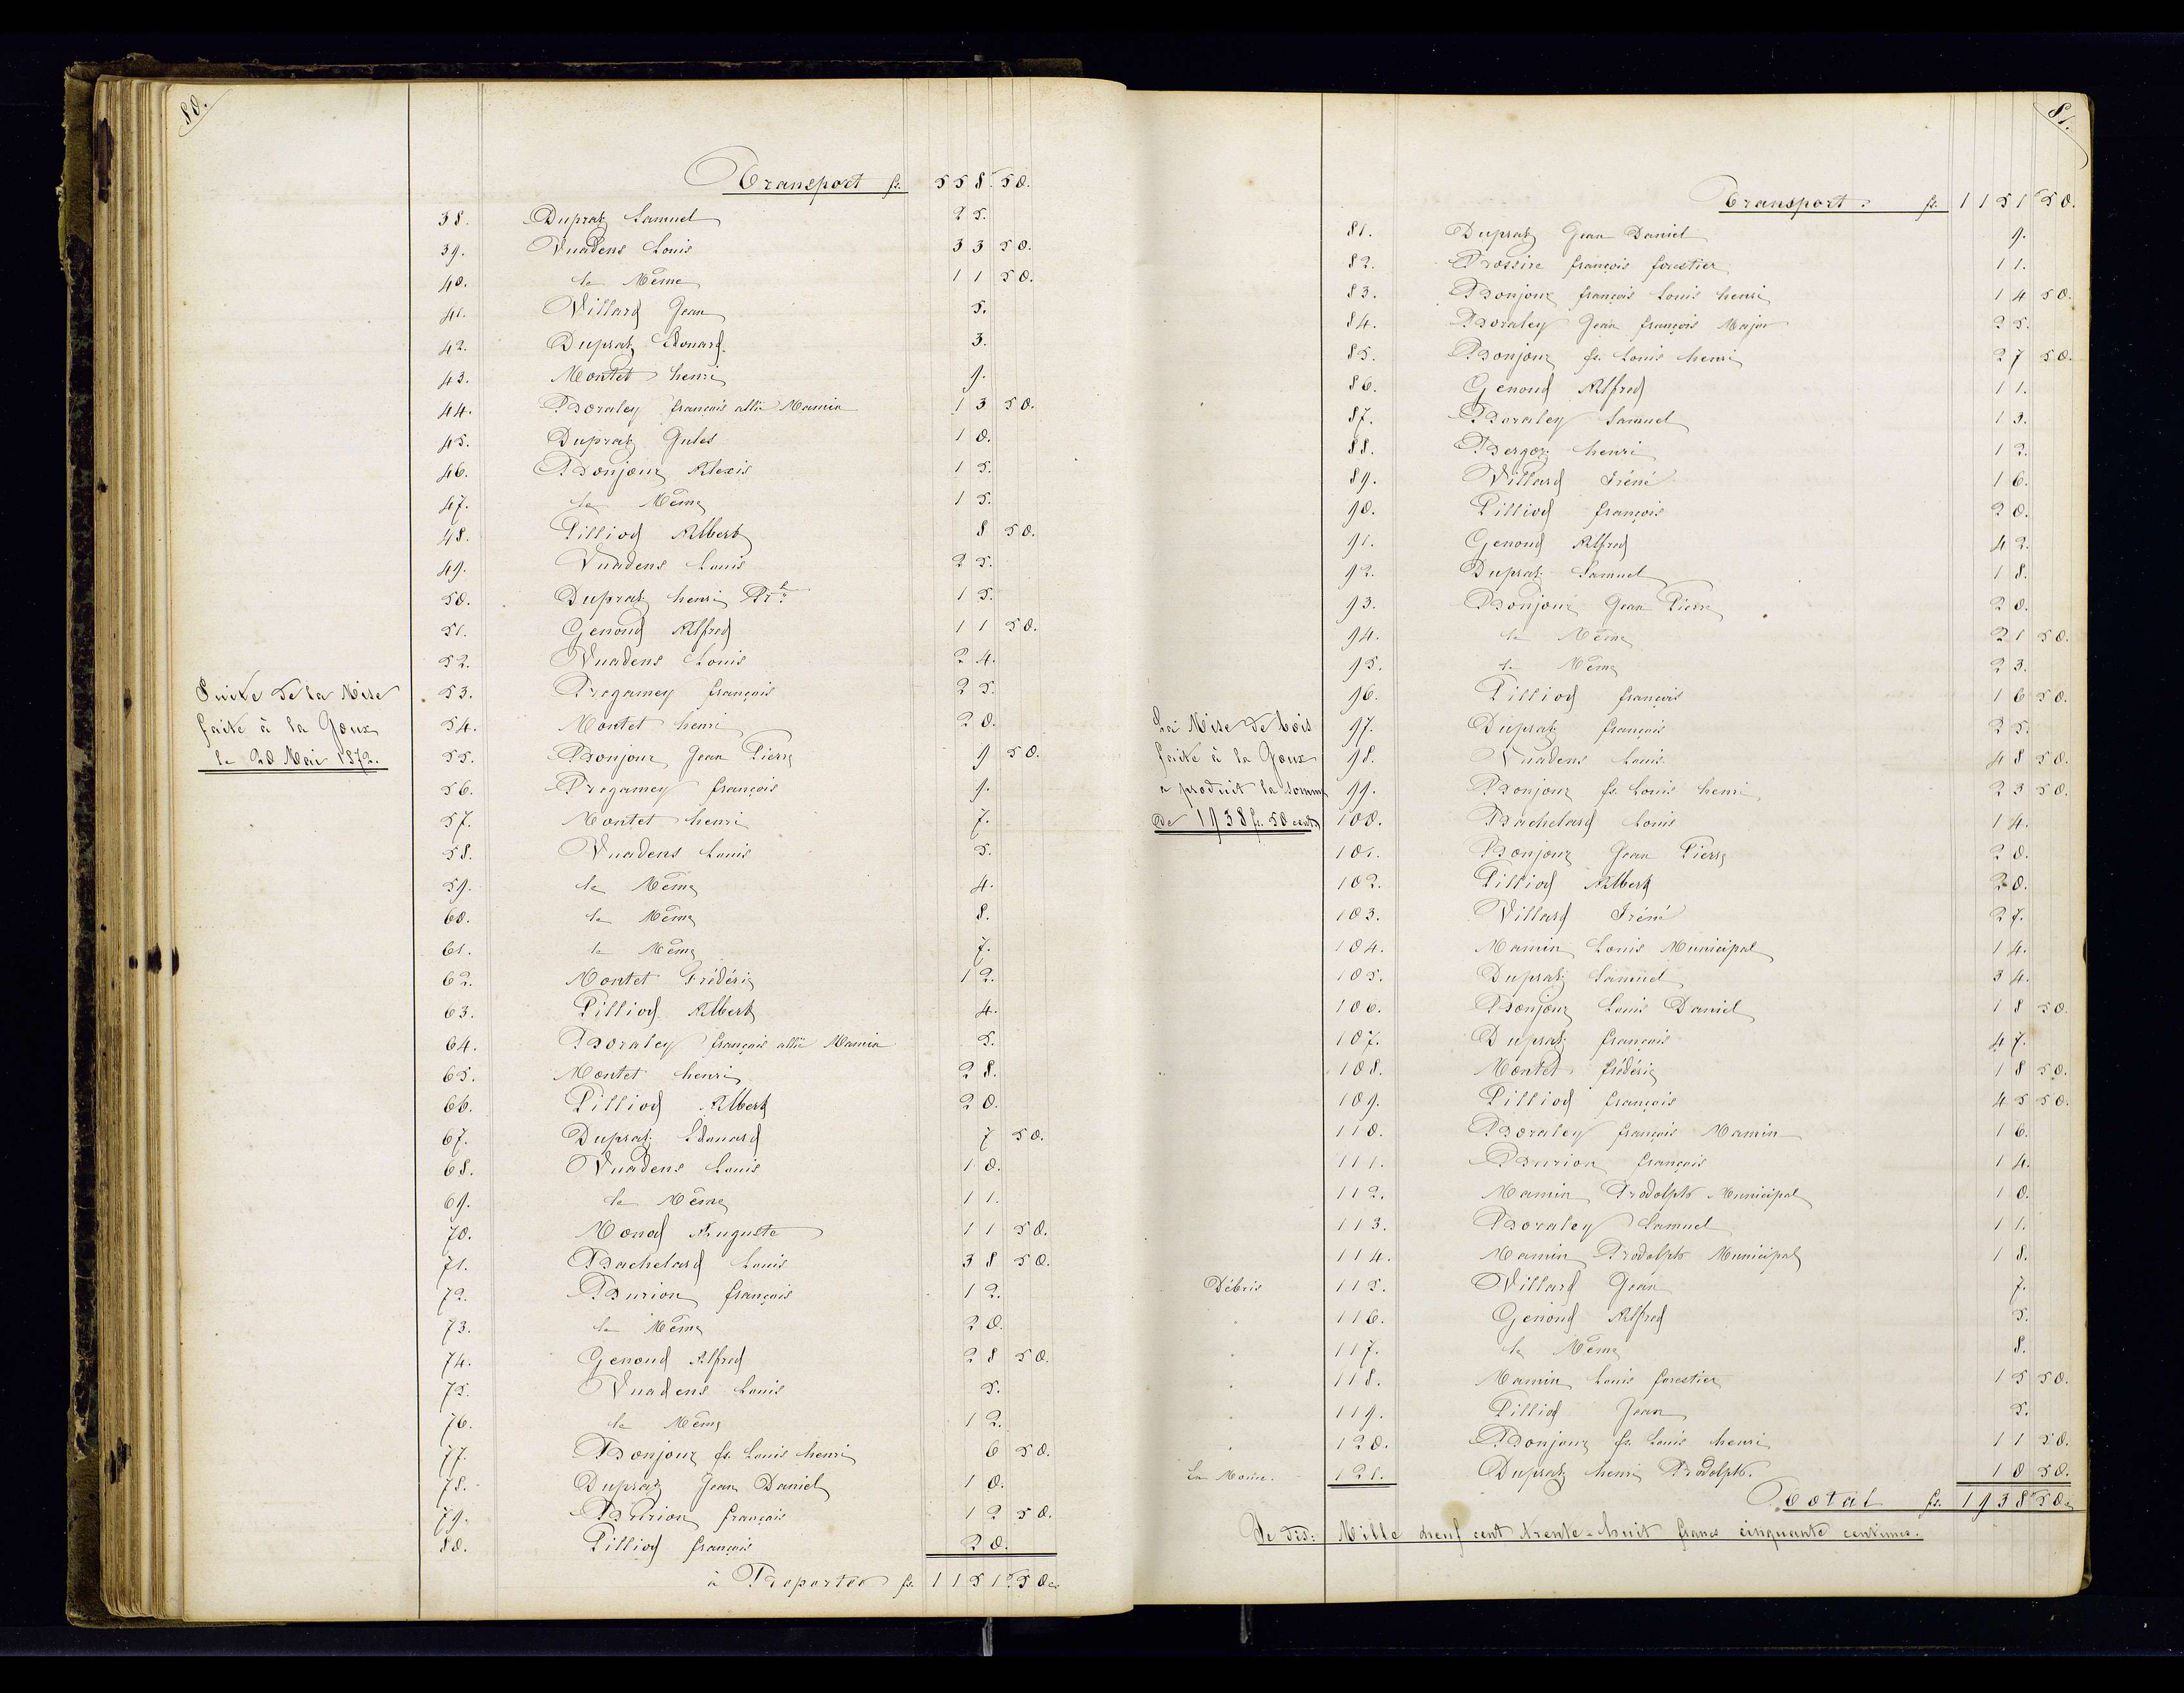 80.
Transport fs. 558. 50.
38. Dupraz Samuel 25.
39. Vuadens Louis 33 50.
40. le Même 11 50.
41. Villard Jean 5.
42. Dupraz Edouard. 3.
43. Montet henri 9.
44. Boraley françois allié Mamin 13 50.
45. Dupraz Jules 10.
46. Bonjour Alexis 15.
47. le Même 15.
48. Pilliod Albert 8 50.
49. Vuadens Louis 25.
50. Dupraz henri Rr. 15.
51. Genoud Alfred 11 50.
52. Vuadens Louis 24.
Suite de la Mise
faite à la Goux
le 20 Mai 1872.
53. Pregamey françois 25.
54. Montet henri 20.
55. Bonjour Jean Pierre 9 50.
56. Pregamey françois 9.
57. Montet henri 7.
58. Vuadens Louis 5.
59. le Même 4.
60. le Même 8.
61. le Même 7.
62. Montet Frédéric 12.
63. Pilliod Albert 4.
64. Boraley françois allié Mamin 5.
65. Montet henri 28.
66. Pilliod Albert 20.
67. Dupraz Edouard 7 50.
68. Vuadens Louis 10.
69. le Même 11.
70. Monod Auguste 11 50.
71. Bachelard Louis 38 50.
72. Burion françois 12.
73. le Même 20.
74. Genoud Alfred 28 50.
75. Vuadens Louis 5.
76. le Même 12.
77. Bonjour fs. Louis henri 6 50.
78. Dupraz Jean Daniel 10.
79. Burion françois 12 50.
80. Pilliod françois 20.
à Reporter fs. 1151. 50 c.
81.
Transport. fs. 1151 50.
81. Dupraz Jean Daniel 9.
82. Rossire françois forestier 11.
83. Bonjour françois Louis henri 14 50.
84. Boraley Jean françois Major 25.
85. Bonjour fs. Louis henri 27 50.
86. Genoud Alfred 11.
87. Boraley Samuel 13.
88. Bergoz henri 12.
89. Villard Iréné 16.
90. Pilliod françois 20.
91. Genoud Alfred 42.
92. Dupraz Samuel 18.
93. Bonjour Jean Pierre 20.
94. le Même 21 50.
95. le Même 23.
96. Pilliod françois 16 50.
La Mise de bois
faite à la Goux
a produit la somme
de 1938 fr. 50 cent.
97. Dupraz françois 25.
98. Vuadens Louis 48 50.
99. Bonjour fs. Louis henri 23 50.
100. Bachelard Louis 14.
101. Bonjour Jean Pierre 20.
102. Pilliod Albert 20.
103. Villard Iréné 27.
104. Mamin Louis Municipal 14.
105. Dupraz Samuel 34.
106. Bonjour Louis Daniel 18 50.
107. Dupraz françois 47.
108. Montet frédéric 18 50.
109. Pilliod françois 45 50.
110. Boraley françois Mamin 16.
111. Burion françois 14.
112. Mamin Rodolph Municipal 10.
113. Boraley Samuel 11.
114. Mamin Rodolph Municipal 18.
Débris 115. Villard Jean 7.
" 116. Genoud Alfred 5.
" 117. le Même 8.
" 118. Mamin Louis forestier 15 50.
" 119. Pilliod Jean 5.
" 120. Bonjour fs. Louis henri 11 50.
121. Dupraz henri Rodolph. 10 50.
Total fs. 1938 50 c
Je dis: Mille neuf cent trente-huit francs cinquante centimes.